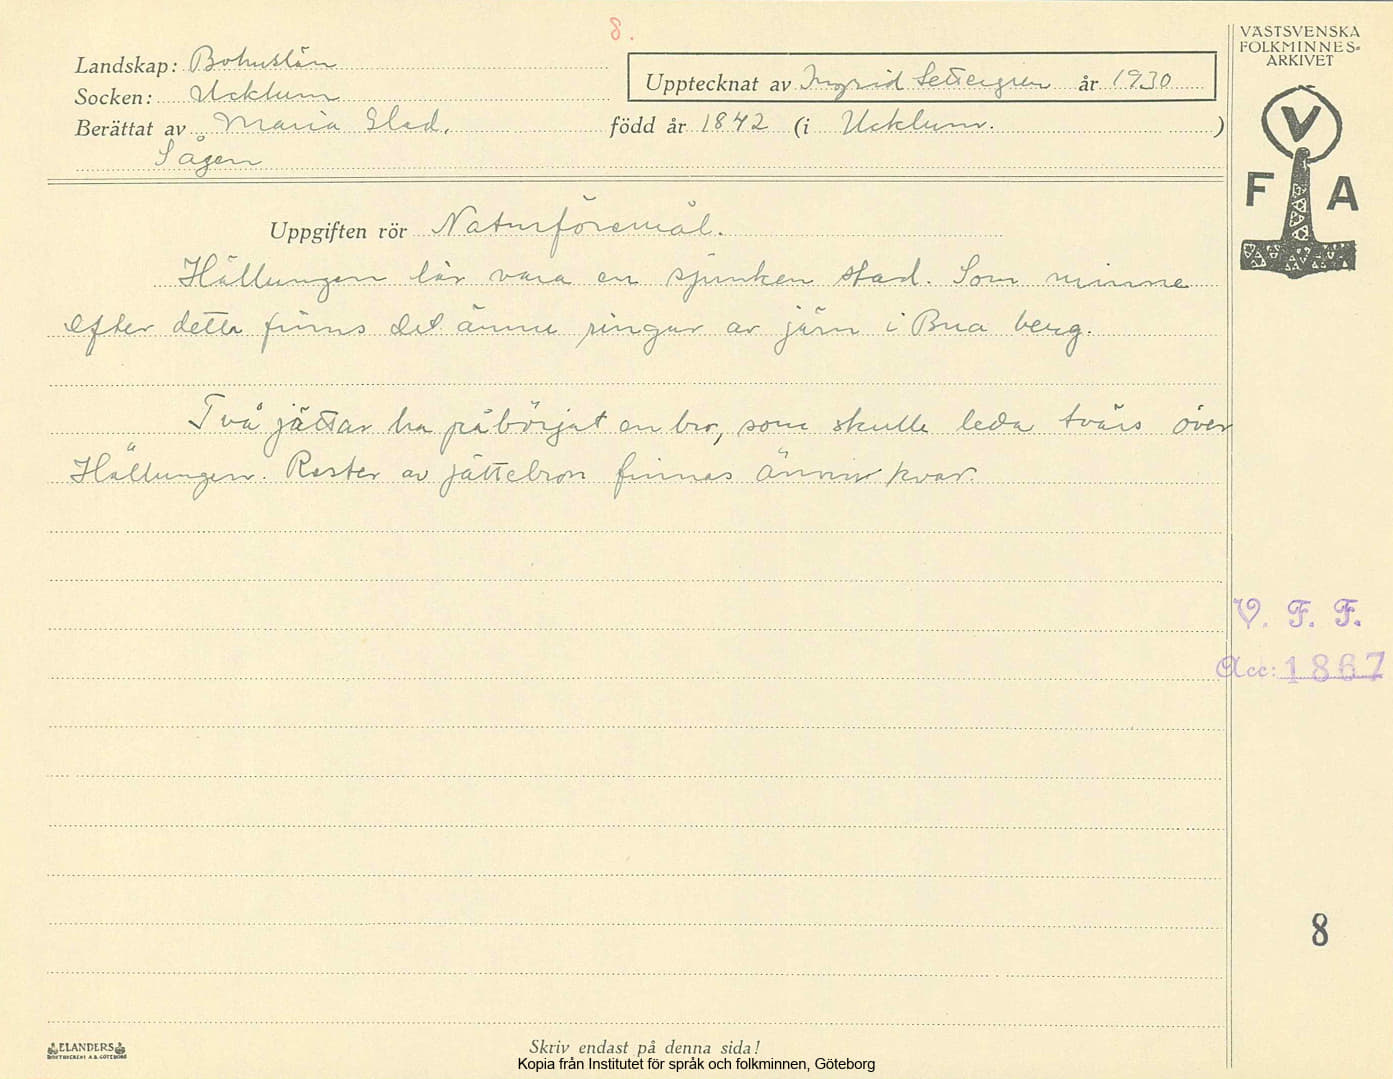 8.
VÄSTSVENSKA
FOLKMINNES-
ARKIVET
Landskap: Bohuslän
Upptecknat av Ingrid Settergren år 1930
Socken: Ucklum
Berättat av Maria Glad. född år 1842 (i Ucklum. )
Sågen
V
F A
Uppgiften rör Naturföremål.
Hällungen lär vara en sjunken stad. Som minne
efter detta finns det ännu ringar av järn i Bua berg.
Två jättar ha påbörjat en bro, som skulle leda tvärs över
Hällungen. Rester av jättebron finnas ännu kvar.
V. F. F.
Acc: 1867
8
ELANDERS
BOKTRYCKERI A.B. GÖTEBORG
Skriv endast på denna sida!
Kopia från Institutet för språk och folkminnen, Göteborg